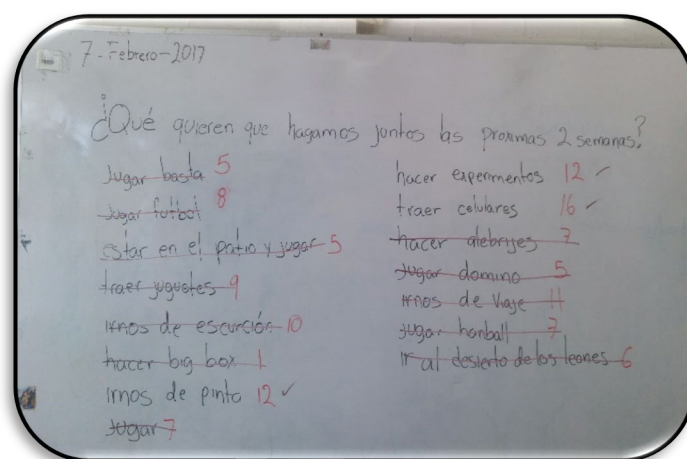 7-Febrero-2017
¿Qué quieren que hagamos juntos las proximas 2 semanas?
Jugar basta 5
Jugar futbol 8
estar en el patio y jugar 5
traer juguetes 9
irnos de escurción 10
hacer big box 1
irnos de pinta 12 ✓
Jugar 7
hacer experimentos 12 ✓
traer celulares 16 ✓
hacer alebrijes 7
Jugar domino 5
irnos de viaje 11
jugar honball 7
ir al desierto de los leones 6